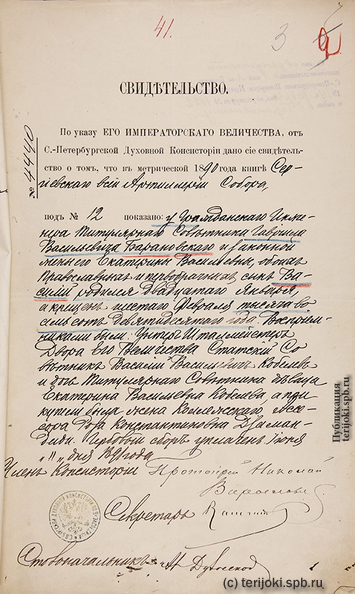 41.
3
СВИДѢТЕЛЬСТВО.
По указу ЕГО ИМПЕРАТОРСКАГО ВЕЛИЧЕСТВА, отъ
С.-Петербургской Духовной Консисторіи дано сіе свидѣтель-
ство о томъ, что въ метрической 1890 года книгѣ Сер-
гіевскаго всей Артиллеріи Собора,
№ 4440
подъ № 12 показано: у Гражданскаго Инже-
нера Титулярнаго Совѣтника Гавріила
Васильевича Барановскаго и законной
жены его Екатерины Васильевны, обоихъ
православныхъ и первобрачныхъ сынъ Ва-
силій родился двадцатаго Января
а крещенъ шестаго Февраля тысяча во-
семьсотъ девяностаго года. Воспріем-
никами были:
Двора Его Величества Статскій Со-
вѣтникъ Василій Васильевичъ Кобелевъ
и дочь Титулярнаго Совѣтника дѣвица
Екатерина Васильевна Кобелева, а при
купели была жена Коллежскаго Асес-
сора Константиновна
Гербовый сборъ уплаченъ. Іюня
дня 1890 года
Членъ Консисторіи Протоіерей Николай
Секретарь
Столоначальникъ
Публикация
terijoki.spb.ru
(c) terijoki.spb.ru